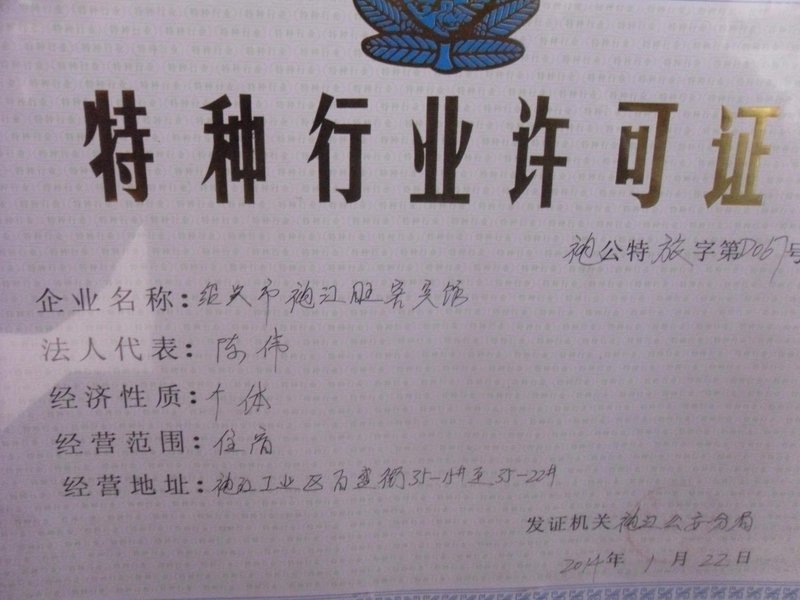 特种行业许可证
袍公特旅字第D067号
企业名称：绍兴市袍江旺客宾馆
法人代表：陈伟
经济性质：个体
经营范围：住宿
经营地址：袍江工业区百盛街35-15#至35-22#
发证机关 袍江公安分局
2014年1月22日